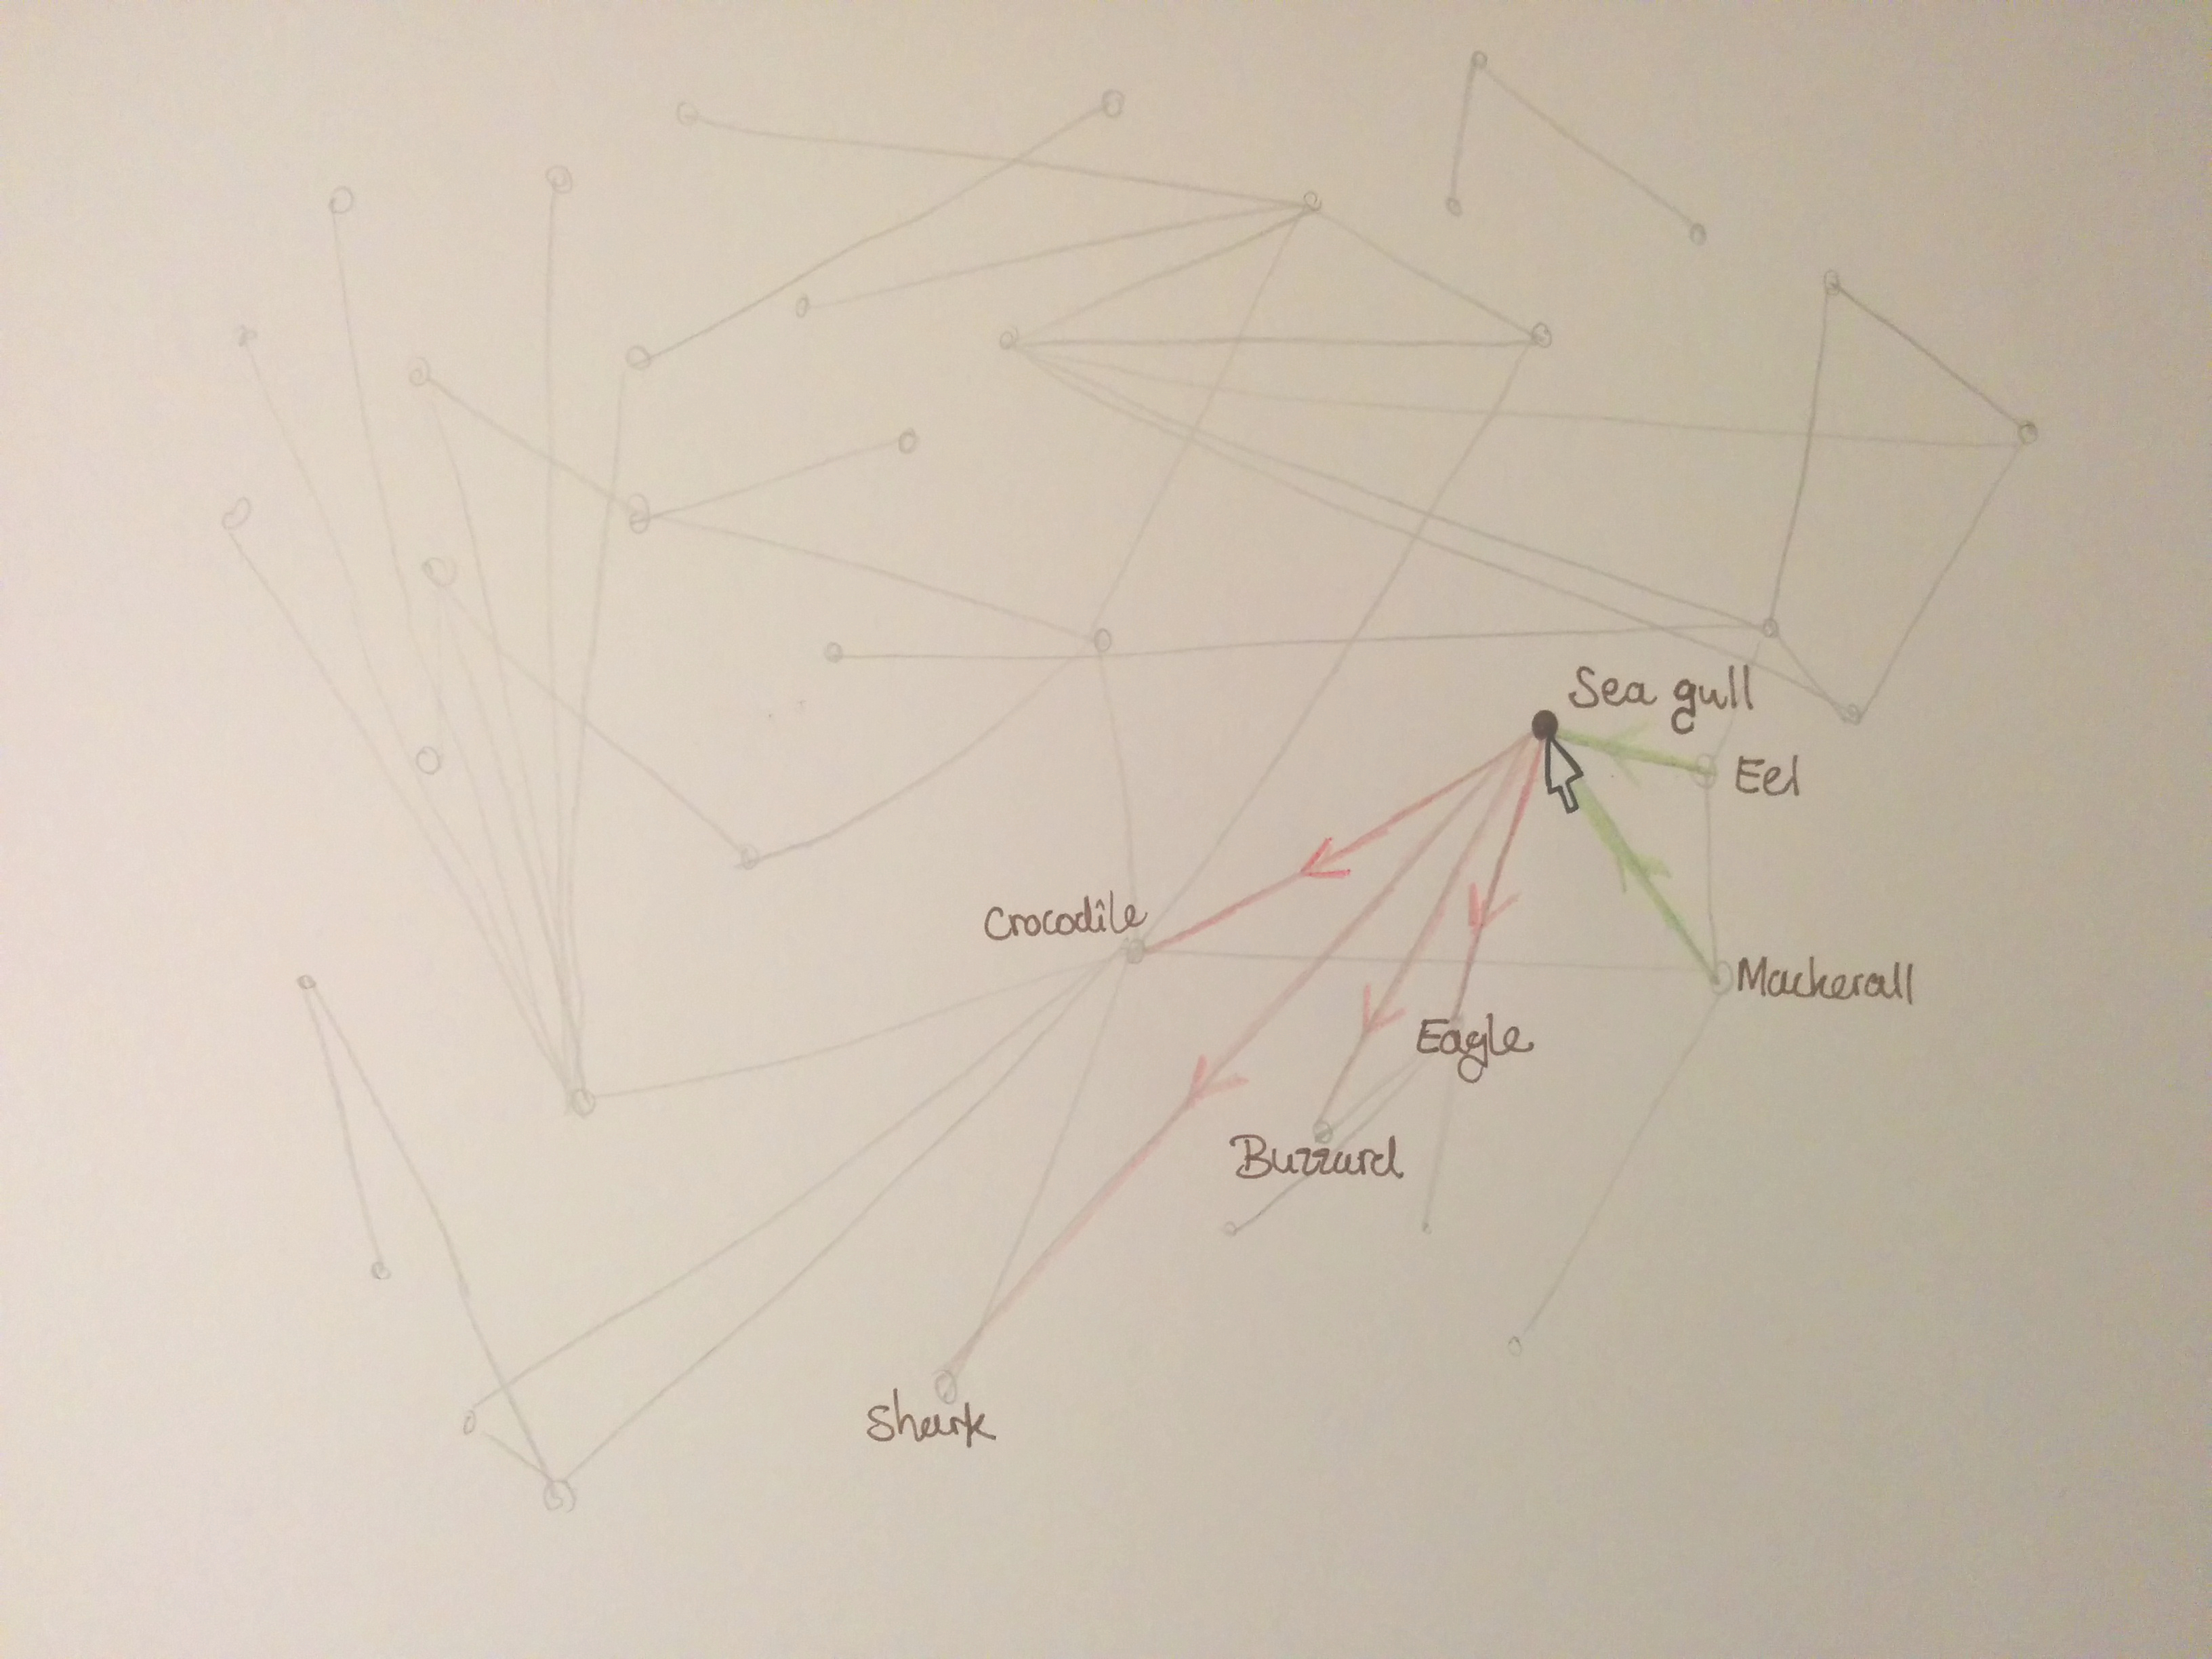 Sea gull
Eel
Crocodile
Mackerall
Eagle
Buzzard
Shark